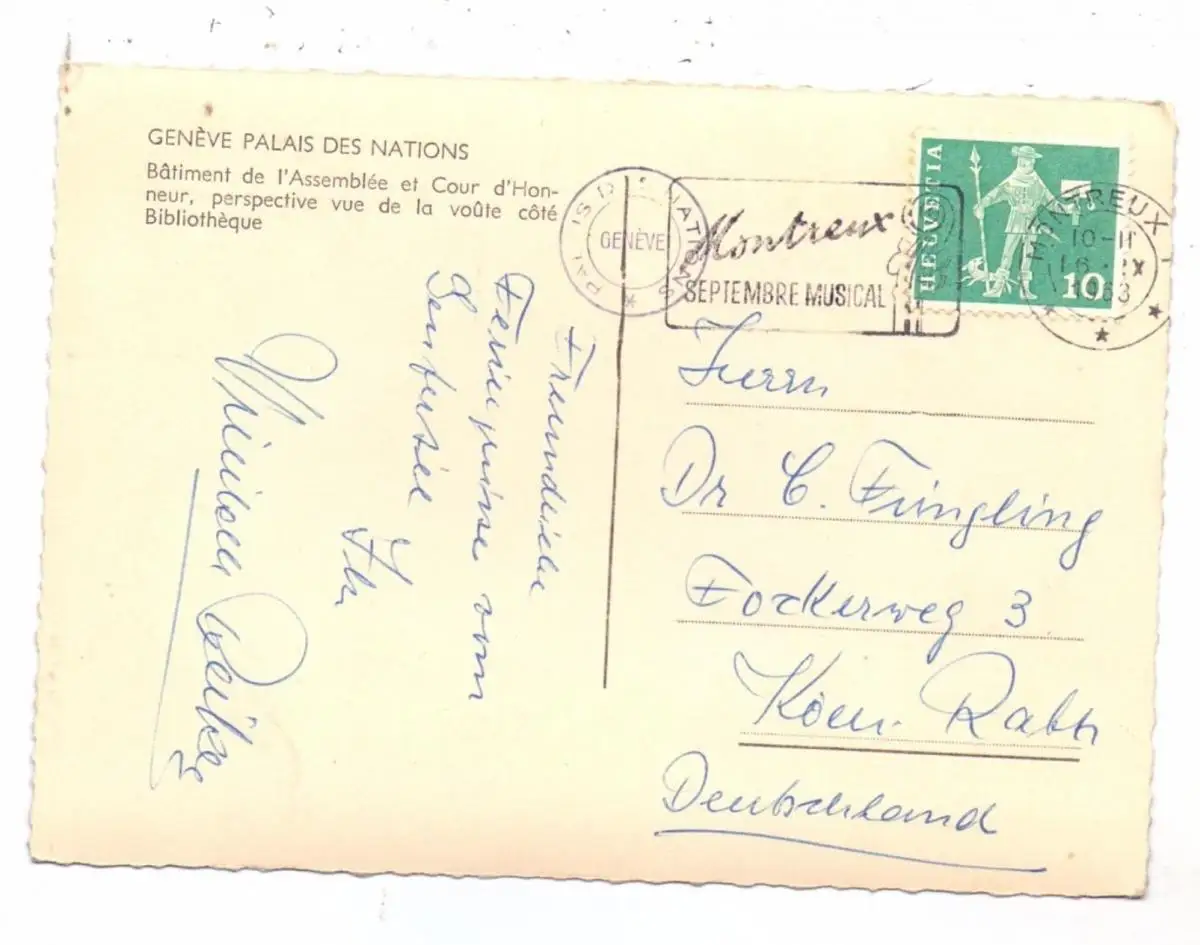 GENÈVE PALAIS DES NATIONS
Bâtiment de l'Assemblée et Cour d'Hon-
neur, perspective vue de la voûte côté
Bibliothèque
PALAIS DES NATIONS
GENÈVE
Montreux
SEPTEMBRE MUSICAL
HELVETIA
10
MONTREUX 1
10-11
1963
Herrn
Dr C. Füngling
Fockerweg 3
Köln. Rath
Deutschland
vom
Genfersee
Ihr